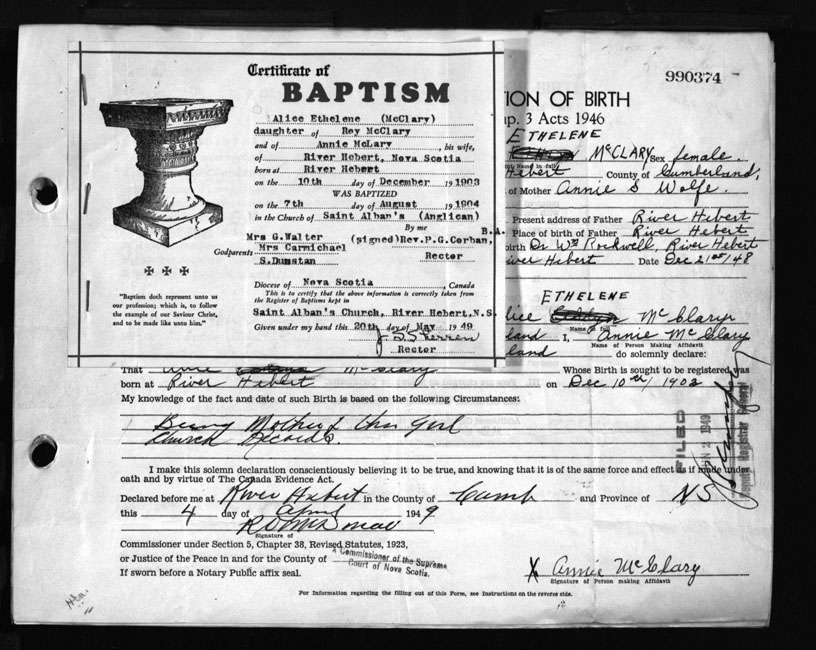 Certificate of
BAPTISM
Alice Ethelene (McClary)
daughter of Roy McClary
and of Annie McLary , his wife,
of River Hebert, Nova Scotia
born at River Hebert
on the 10th day of December 1903
WAS BAPTIZED
on the 7th day of August 1904
in the Church of Saint Alban's (Anglican)
By me B.A.
Mrs G.Walter (signed)Rev.P.G.Corban,
Godparents Mrs Carmichael Rector
S.Dunstan
Diocese of Nova Scotia , Canada
This is to certify that the above information is correctly taken from
the Register of Baptisms kept in
Saint Alban's Church, River Hebert,N.S.
Given under my hand this 20th day of May 1949
Rector
"Baptism doth represent unto us
our profession; which is, to follow
the example of our Saviour Christ,
and to be made like unto him."
990374
TION OF BIRTH
p. 3 Acts 1946
ETHELENE
McCLARY Sex female.
this Name in full
Hebert County of Cumberland,
of Mother Annie S Wolfe.
Present address of Father River Hebert
Place of birth of Father River Hebert
birth Dr Wm Rockwell, River Hebert
River Hebert Date Dec 21st/48
ETHELENE
lice McClary
Name in full
land I, Annie McClary
Name of Person Making Affidavit
land do solemnly declare:
That Alice McClary Whose Birth is sought to be registered was
born at River Hebert on Dec 10th/1903
My knowledge of the fact and date of such Birth is based on the following Circumstances:
Being Mother of this Girl
Church Records.
I make this solemn declaration conscientiously believing it to be true, and knowing that it is of the same force and effect as if made under
oath and by virtue of The Canada Evidence Act.
Declared before me at River Hebert in the County of Cumb and Province of NS
this 4 day of April 1949
Signature of
Commissioner under Section 5, Chapter 38, Revised Statutes, 1923,
or Justice of the Peace in and for the County of
A Commissioner of the Supreme
Court of Nova Scotia.
If sworn before a Notary Public affix seal.
X Annie McClary
Signature of Person making Affidavit
For Information regarding the filling out of this Form, see Instructions on the reverse side.
FILED
2 1949
Deputy Registrar General